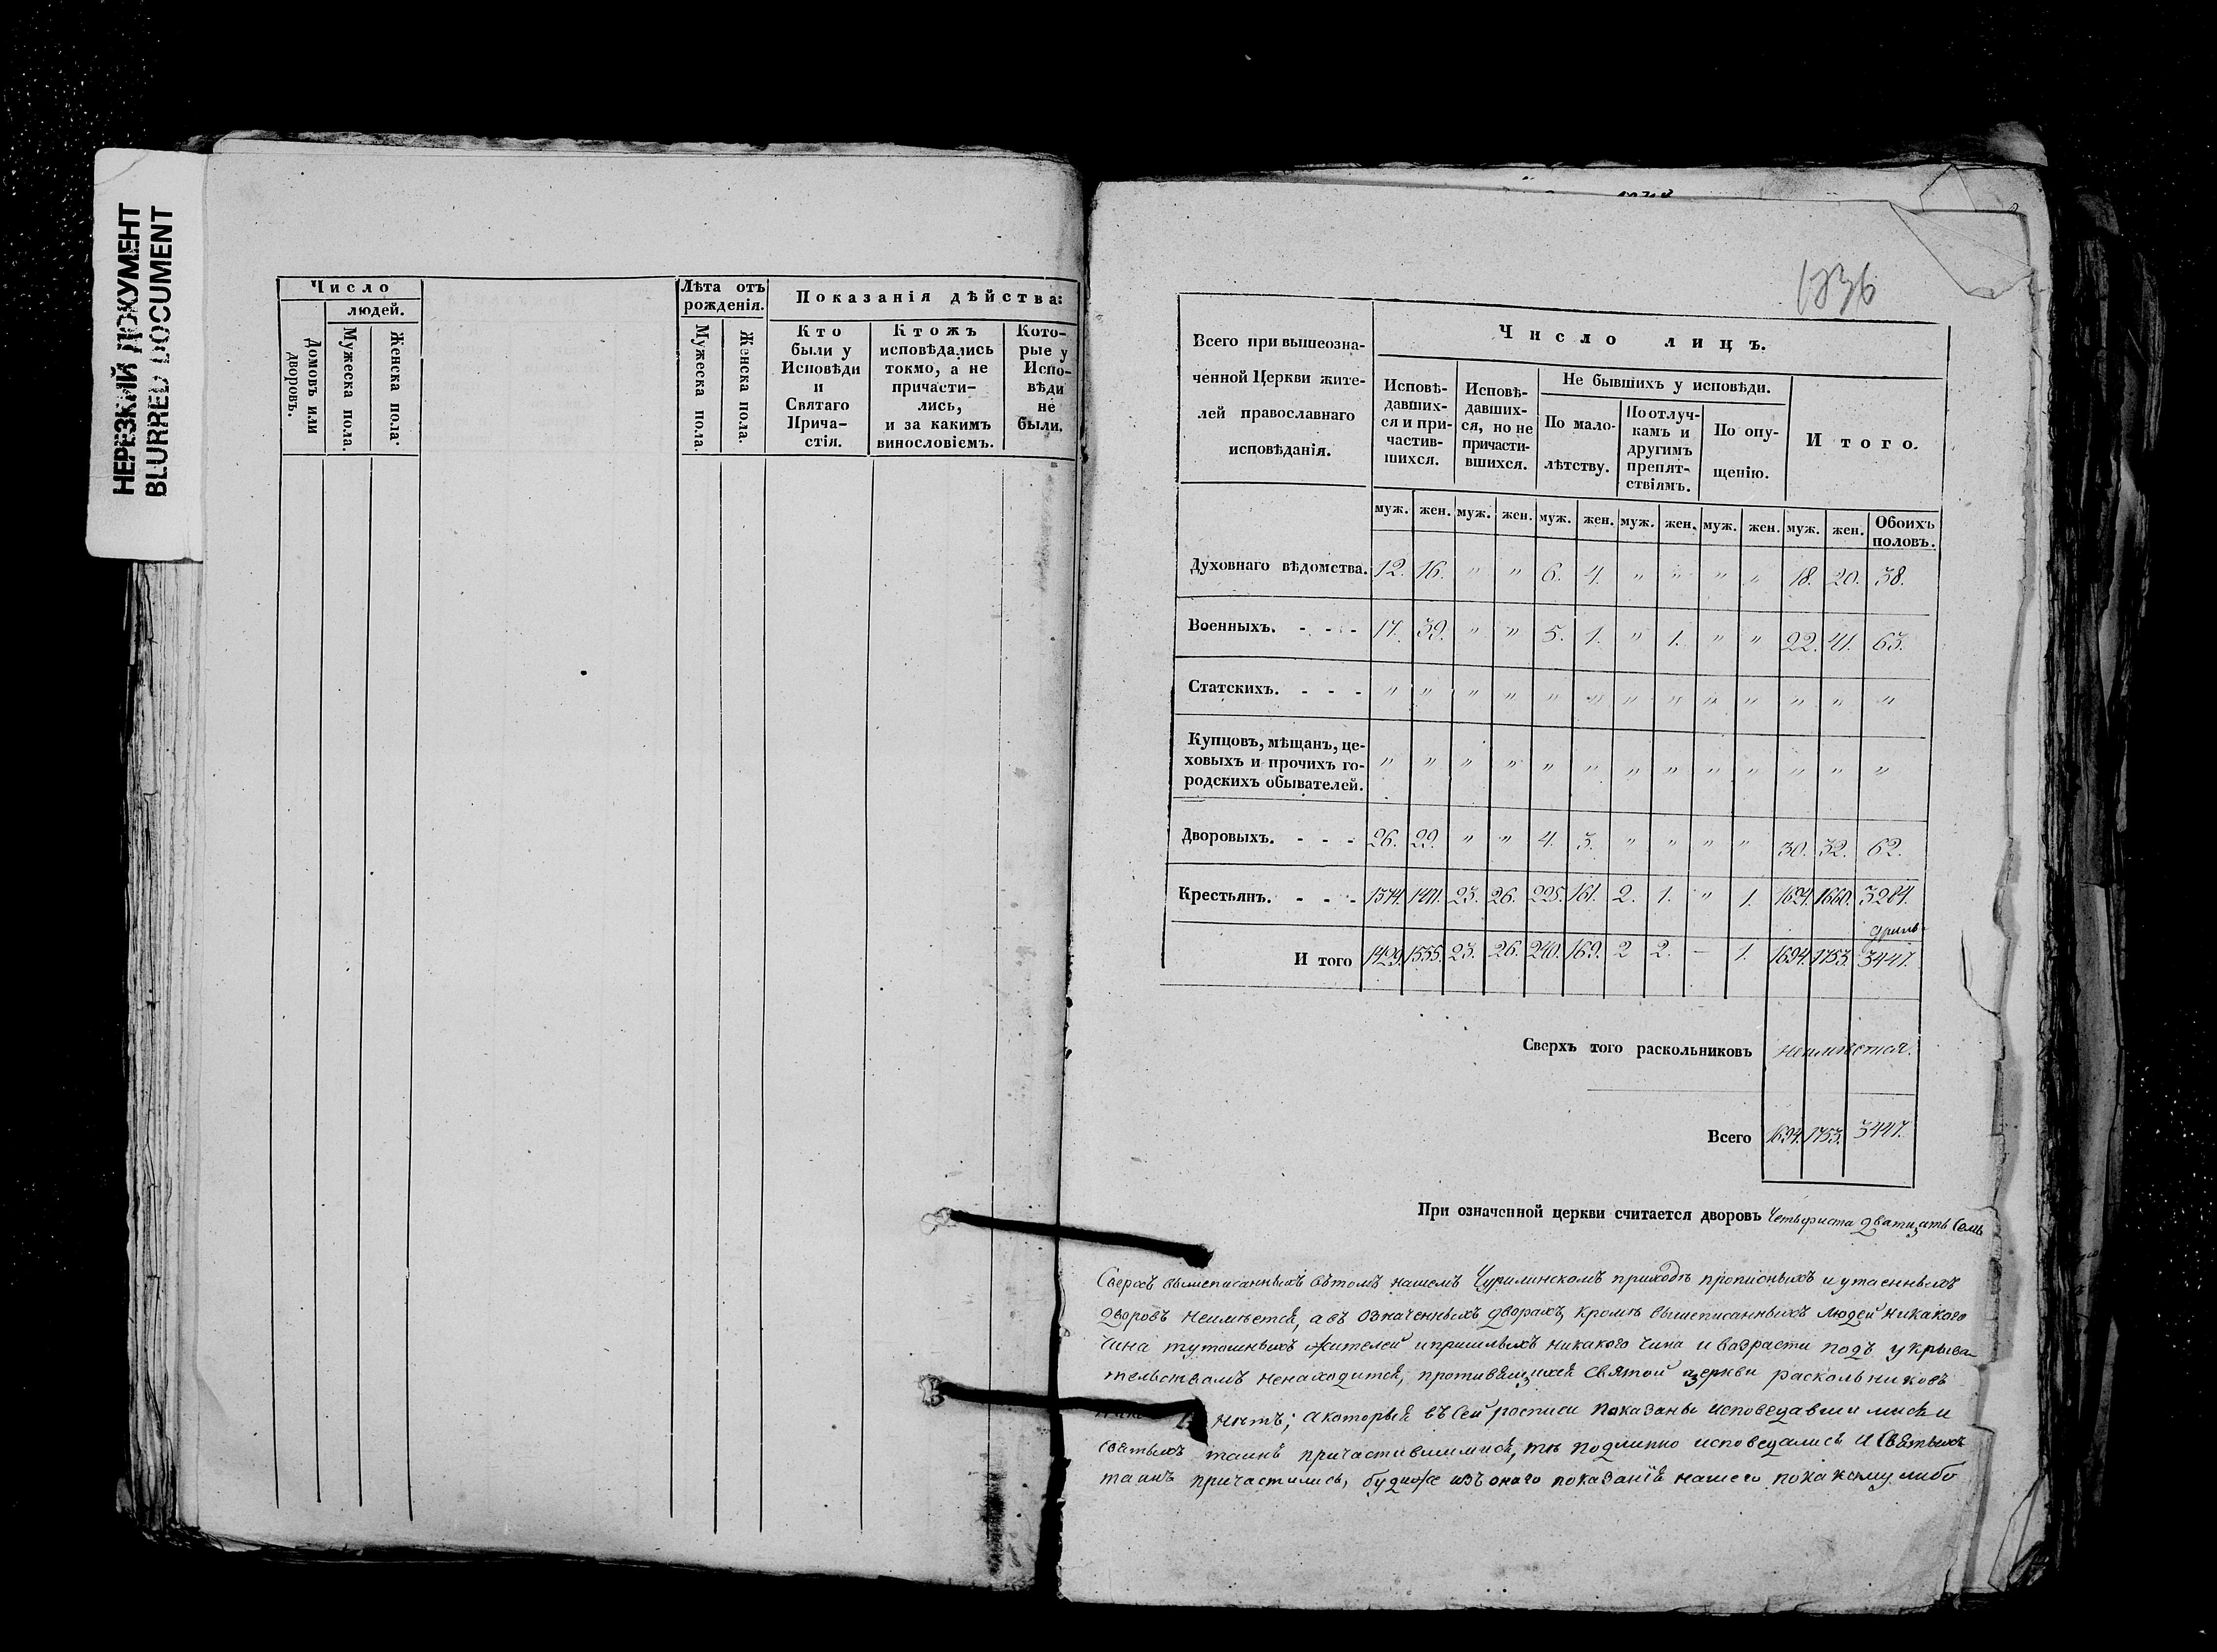 НЕРЕЗКИЙ ДОКУМЕНТ
BLURRED DOCUMENT
Число
людей.
Домовъ или дворовъ.
Мужеска пола.
Женска пола.
Лѣта отъ рожденія.
Мужеска пола.
Женска пола.
Показанія дѣйства:
Кто
были у
Исповѣди
и
Святаго
Прича-
стія.
Ктожъ
исповѣдались
токмо, а не
причасти-
лись,
и за какимъ
винословіемъ.
Кото-
рые у
Испо-
вѣди
не
были.
Всего при вышеозна-
ченной Церкви жите-
лей православнаго
исповѣданія.
Число лицъ.
Исповѣ-
давших-
ся и при-
частив-
шихся.
Исповѣ-
давших-
ся, но не
причасти-
вшихся.
Не бывшихъ у исповѣди.
По мало-
лѣтству.
По отлуч-
камъ и
другимъ
препят-
ствіямъ.
По опу-
щенію.
Итого.
муж. жен. муж. жен. муж. жен. муж. жен. муж. жен. муж. жен. Обоихъ половъ.
Духовнаго вѣдомства. 12. 16. " " 6. 4. " " " " 18. 20. 38.
Военныхъ. - - - 17. 39. " " 5. 1. " 1. " " 22. 41. 63.
Статскихъ. - - - " " " " " " " " " " " " "
Купцовъ, мѣщанъ, це-
ховыхъ и прочихъ го-
родскихъ обывателей. " " " " " " " " " " " " "
Дворовыхъ. - - - 26. 29. " " 4. 3. " " " " 30. 32. 62.
Крестьянъ. - - - 1374. 1471. 23. 26. 225. 161. 2. 1. " 1. 1624. 1660. 3284.
И того 1429. 1555. 23. 26. 240. 169. 2 2. — 1. 1694. 1753. 3447.
Сверхъ того раскольниковъ неимѣется.
Всего 1694. 1753. 3447.
При означенной церкви считается дворовъ Четыриста дватцать Семь
Сверхъ вышеписанныхъ вътомъ нашемъ Чурилинскомъ приходѣ прописныхъ и утаенныхъ
дворовъ неимѣется, авъ означенныхъ дворахъ, кромѣ вышеписанныхъ людей никакого
чина тутошныхъ жителей ипришлыхъ никакого чина и возрасти подъ укрыва-
тельствомъ ненаходится, противящихся Святой церкви раскольниковъ
нѣтъ; акоторыя въ Сей росписи показаны исповедавшимися и
Святыхъ таинъ причастившимися, тѣ подлинно исповедались и Святыхъ
таинъ причастились, будиже изъ онаго показанія нашего покакому либо